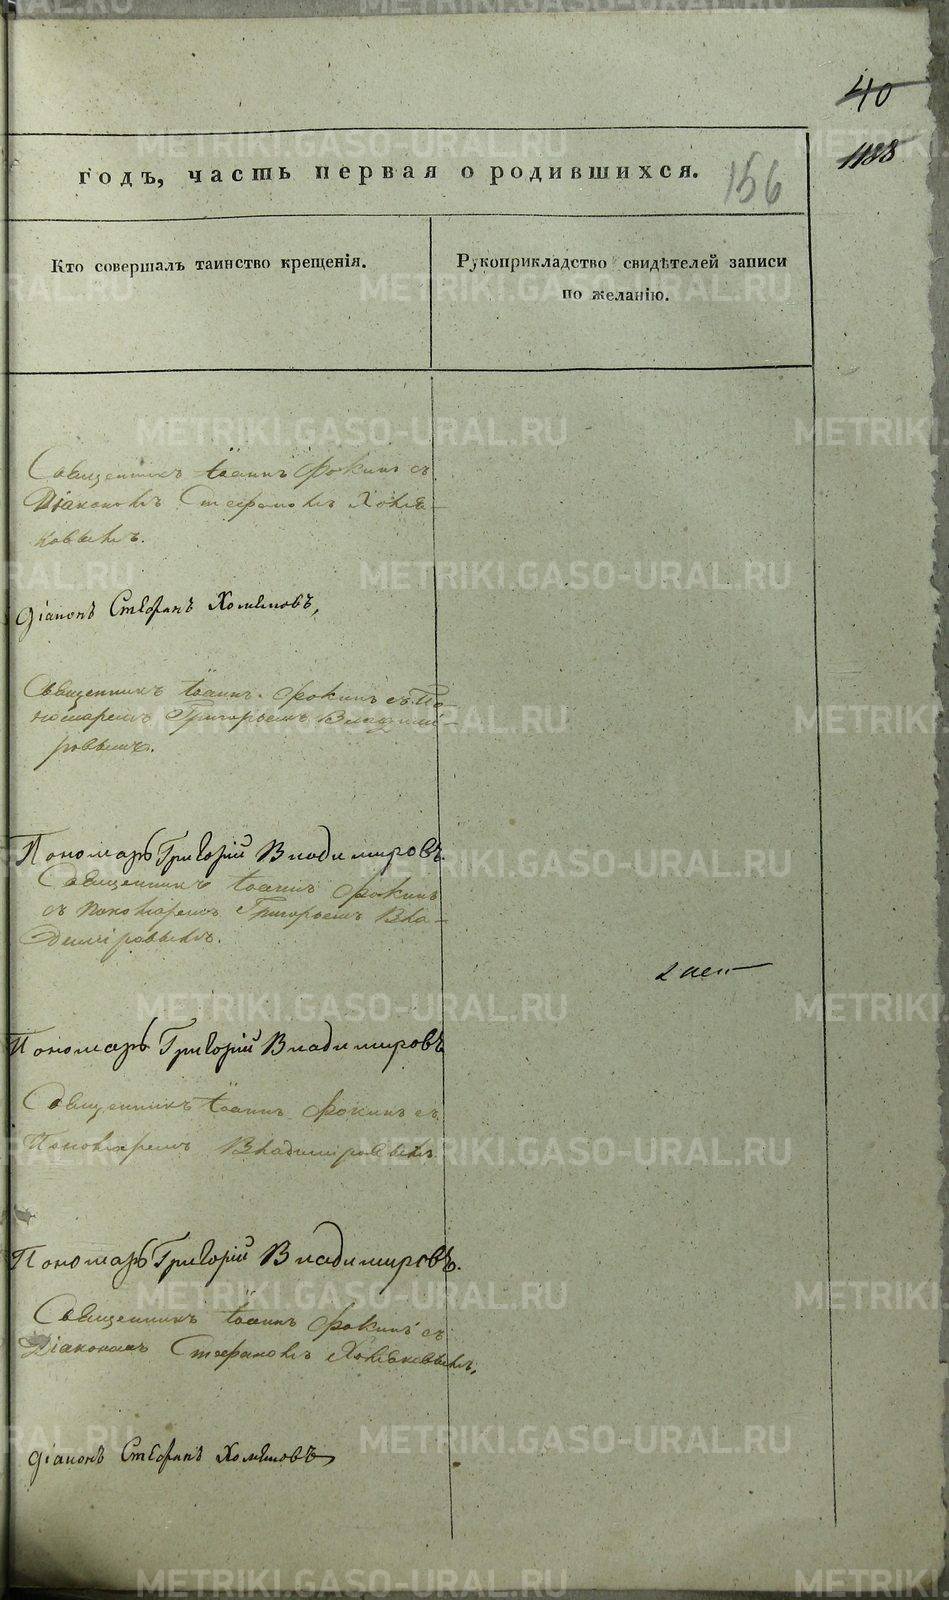 40
1188
годъ, часть первая о родившихся.
156
Кто совершалъ таинство крещенія.
Рукоприкладство свидѣтелей записи
по желанію.
Священникъ Іоаннъ Фокинъ съ
Діакономъ Стефаномъ Хомя-
ковымъ.
Діаконъ Стефанъ Хомяковъ,
Священникъ Іоаннъ Фокинъ съ По
номаремъ Григорьемъ Владимі-
ровымъ.
Пономарь Григорій Владимировъ.
Священникъ Іоаннъ Фокинъ
съ пономаремъ Григорьемъ Вла-
диміровымъ.
Пономарь Григорій Владимировъ
Священникъ Іоаннъ Фокинъ съ
Пономаремъ Владиміровымъ
Пономарь Григорій Владимировъ.
Священникъ Іоаннъ Фокинъ съ
Діакономъ Стефаномъ Хомяковымъ,
Діаконъ Стефанъ Хомяковъ
METRIKI.GASO-URAL.RU